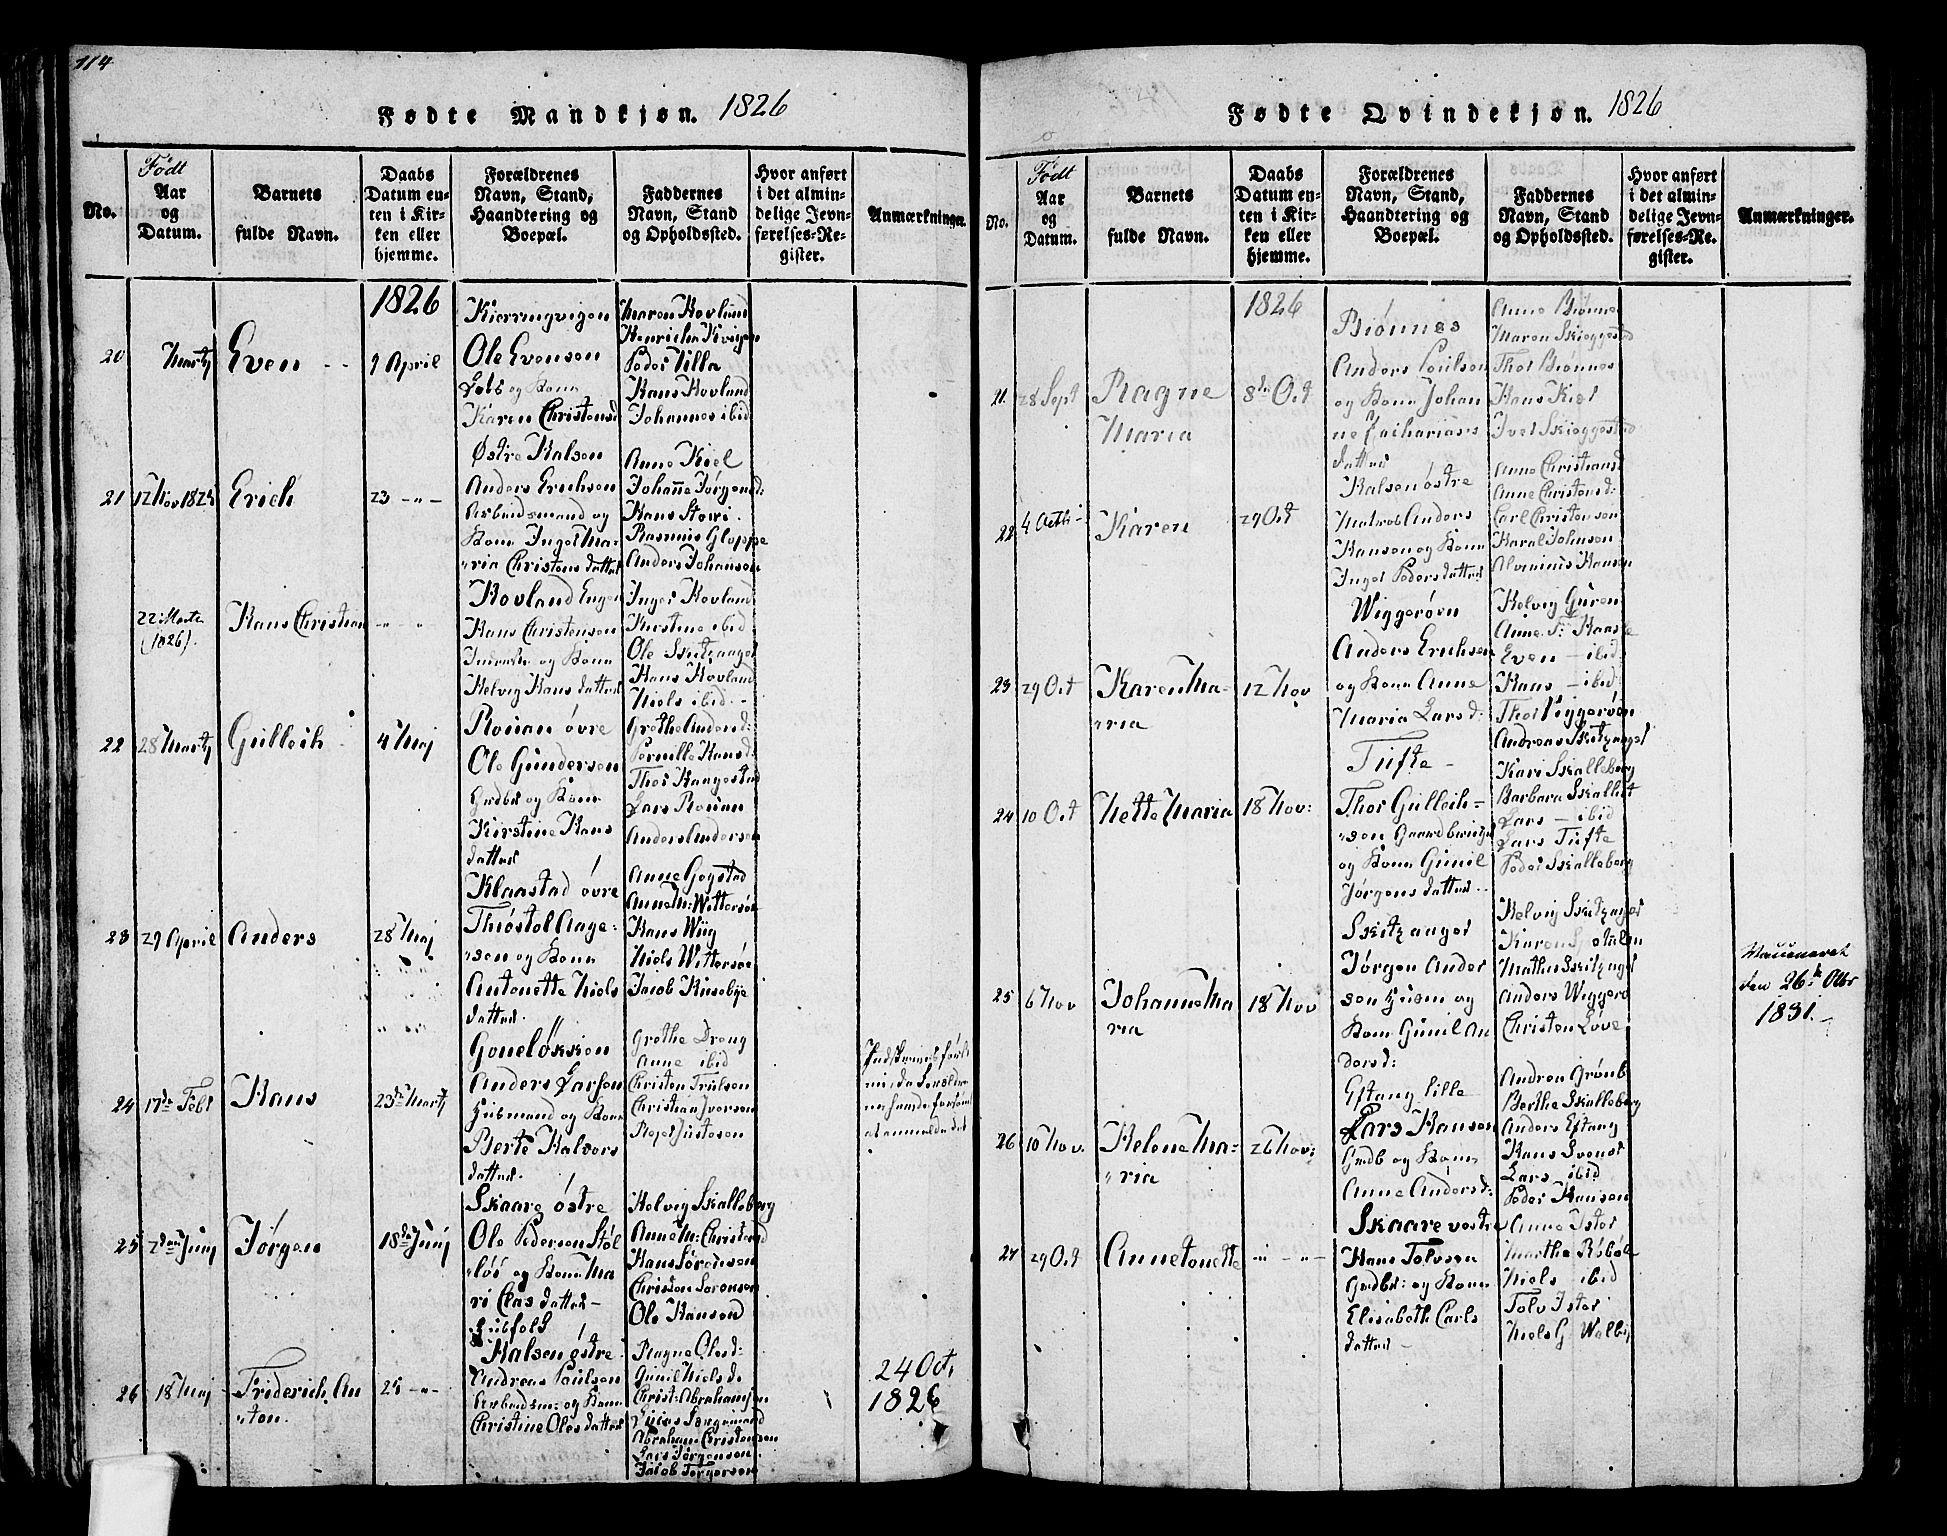 114
Fødte Mandkjøn. 1826
Født
No.
Aar
og
Datum.
Barnets
fulde Navn.
Daabs
Datum en-
ten i Kir-
ken eller
hjemme.
Forældrenes
Navn, Stand,
Haandtering og
Boepæl.
Faddernes
Navn, Stand
og Opholdssted.
Hvor anført
i det almin-
delige Jevn-
førelses-Re-
gister.
Anmærkninger.
1826
20
Martz
Even
9 April
Kierringvigen
Ole Evensen
og Kone
Karen Christensd
Maren Hovland
Peder Villa
Hans Hovland
Johannes ibid
21
12 Nov 1825
Erich
23 - " -
Østre Halsen
Anders Erichsen
Arbeidsmand og
Kone Inger Ma-
ria Christens datter
Anne Kiel
Johanne Jørgensd:
Rasmus Gloppe
Anders Johansen
22 Marts
(1826).
Hans Christian
" "
Hovland Engen
Hans Christensen
Inderste og Kone
Helvig Hans datter
Inger Hovland
Kirstine ibid
Ole Skitzanger
Hans Hovland
Niels ibid.
22
28 Martz
Gulleich
4 Maj
Rouan øvre
Ole Gundersen
Grdbr og Kone
Kirstine Hans
datter
Grethe Andersd:
Pernille Hansd:
Thor Haugestad
Lars Rouan
Anders Andersen
23
29 April
Anders
28 Maj
Klaastad øvre
Thiøstol Aage-
"sen og Kone
Antonette Niels
datter
Anne Gogstad
Anne M: Wittersøe
Hans Wiig
Niels Wittersøe
Jacob Husebye
24
17de Febr
Hans
23de Martz
Goneløkken
Anders Larsen
Huusmand og Kone
Berte Halvors
datter
Grethe Dreng
Anne ibid
Christen Trulsen
Christian Iversen
Rejer Justesen
25
2den Junj
Jørgen
18de Junj
Skaare østre
Ole Pedersen Støl
og Kone Ma
ri Clas datter
Huusfolk
Helvig Skalleberg
Anne M: Christensd
Hans Sørensen
Christen Sørensen
Ole Hansen
26
18 Maj
Friderich An
"ton.
25 - " -
Halsen østre
Andreas Poulsen
Arbeidsm: og Kone
Christine Oles datter
Ragne Olesd:
Gunil Nielsd:
Christ: Abrahamsen
Abraham Christensen
Lars Jørgensen
Jacob Torgersen
24 Oct.
1826
Fødte Qvindekjøn. 1826
Født
No.
Aar
og
Datum.
Barnets
fulde Navn.
Daabs
Datum en-
ten i Kir-
ken eller
hjemme.
Forældrenes
Navn, Stand,
Haandtering og
Boepæl.
Faddernes
Navn, Stand
og Opholdssted.
Hvor anført
i det almin-
delige Jevn-
førelses-Re-
gister.
Anmærkninger.
1826
21.
28 Sept
Ragne
Maria
8de Oct
Biønnes
Anders Poulsen
og Kone Johan
ne Zacharias
datter
Anne Biønnes
Maren Skieggestad
Thor Biønnes
Hans Kiel
Iver Skieggestad
22
4 Octb
Karen
29 Oct
Halsen østre
Matros Anders
Hansen og Kone
Inger Peders datter
Anne Christiansd
Anne Christensd:
Carl Christensen
Haral Johnsen
Alvinius Hansen
23
29 Oct
Karen Ma-
"ria
12 Nov
Wiggerøvn
Anders Erichsen
og Kone Anne
Maria Larsd:
Helvig Guren
Even - ibid
Hans - ibid
Thor Viggerøvn
24
10 Oct
Mette Maria
18 Nov:
Tufte
Thor Gulleich-
"sen Gaardbruger
og Kone Gunil
Jørgens datter
Andreas Skitzanger
Kari Skalleberg
Barbara Skalleb
Lars - ibid
Lars Tufte
Peder Skalleberg
25
6 Nov
Johanne Ma
ria
18 Nov
Skitzanger
Jørgen Ander
sen Husm og
Kone Gunil An
dersd:
Helvig Skitzanger
Mathis Skitzanger
Anders Wiggerø
Christen Løve
Vaccineret
den 26de Octbr
1831.
26
10 Nov.
Helene Ma-
"ria
26 Nov:
Eftang lille
Lars Hansen
Grdb og Kone
Anne Andersd:
Andrea Grønb
Berthe Skalleberg
Anders Eftang
Hans Svensr
Lars ibid
Peder Hansen
27
29 Oct
Annetonette
" - " -
Skaare vestre
Hans Tolvsen
Grdbr: og Kone
Elisabeth Carls
datter
Anne Ister
Marthe Risbøl
Niels ibid
Tolv Ister
Niels G Walby